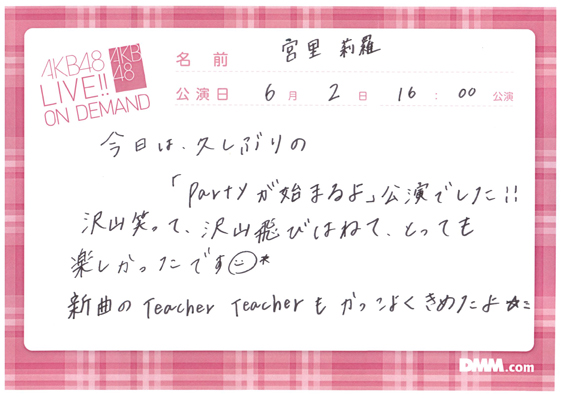 AKB48
LIVE!!
ON DEMAND
AKB
48
名前 宮里 莉羅
公演日 6月 2日 16:00公演
今日は、久しぶりの
「Partyが始まるよ」公演でした!!
沢山笑って、沢山飛びはねて、とっても
楽しかったです
新曲のTeacher Teacherもかっこよくきめたよ
DMM.com